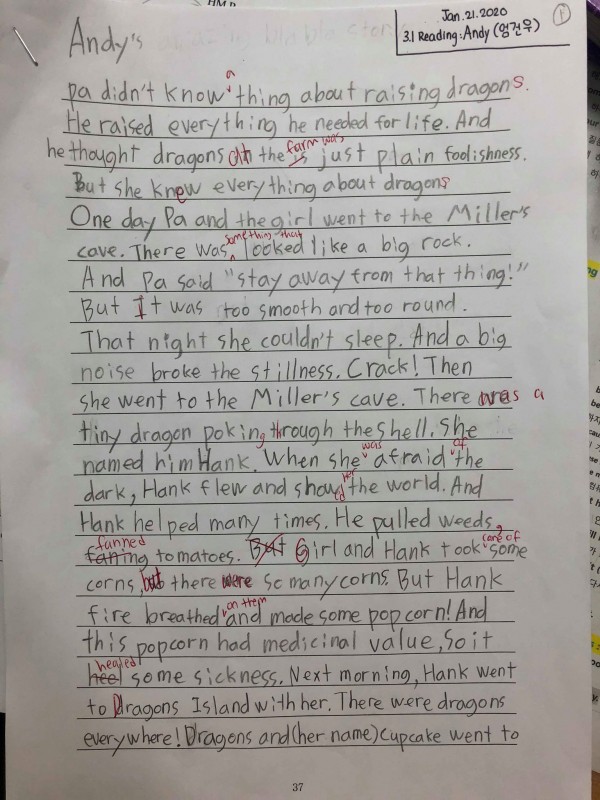 Jan. 21. 2020
①
3.1 Reading: Andy (엄건우)
Andy's
pa didn't know a thing about raising dragons.
He raised everything he needed for life. And
he thought dragons on the farm was just plain foolishness.
But she knew everything about dragons
One day Pa and the girl went to the Miller's
cave. There was something that looked like a big rock.
And Pa said "stay away from that thing!"
But It was too smooth and too round.
That night she couldn't sleep. And a big
noise broke the stillness. Crack! Then
she went to the Miller's cave. There was a
tiny dragon poking through the shell. She
named him Hank. When she was afraid of the
dark, Hank flew and showed her the world. And
Hank helped many times. He pulled weeds,
fanned tomatoes. Girl and Hank took care of some
corns, but there were so many corns. But Hank
fire breathed on them and made some popcorn! And
this popcorn had medicinal value, So it
healed some sickness. Next morning, Hank went
to Dragons Island with her. There were dragons
everywhere! Dragons and (her name) Cupcake went to
37